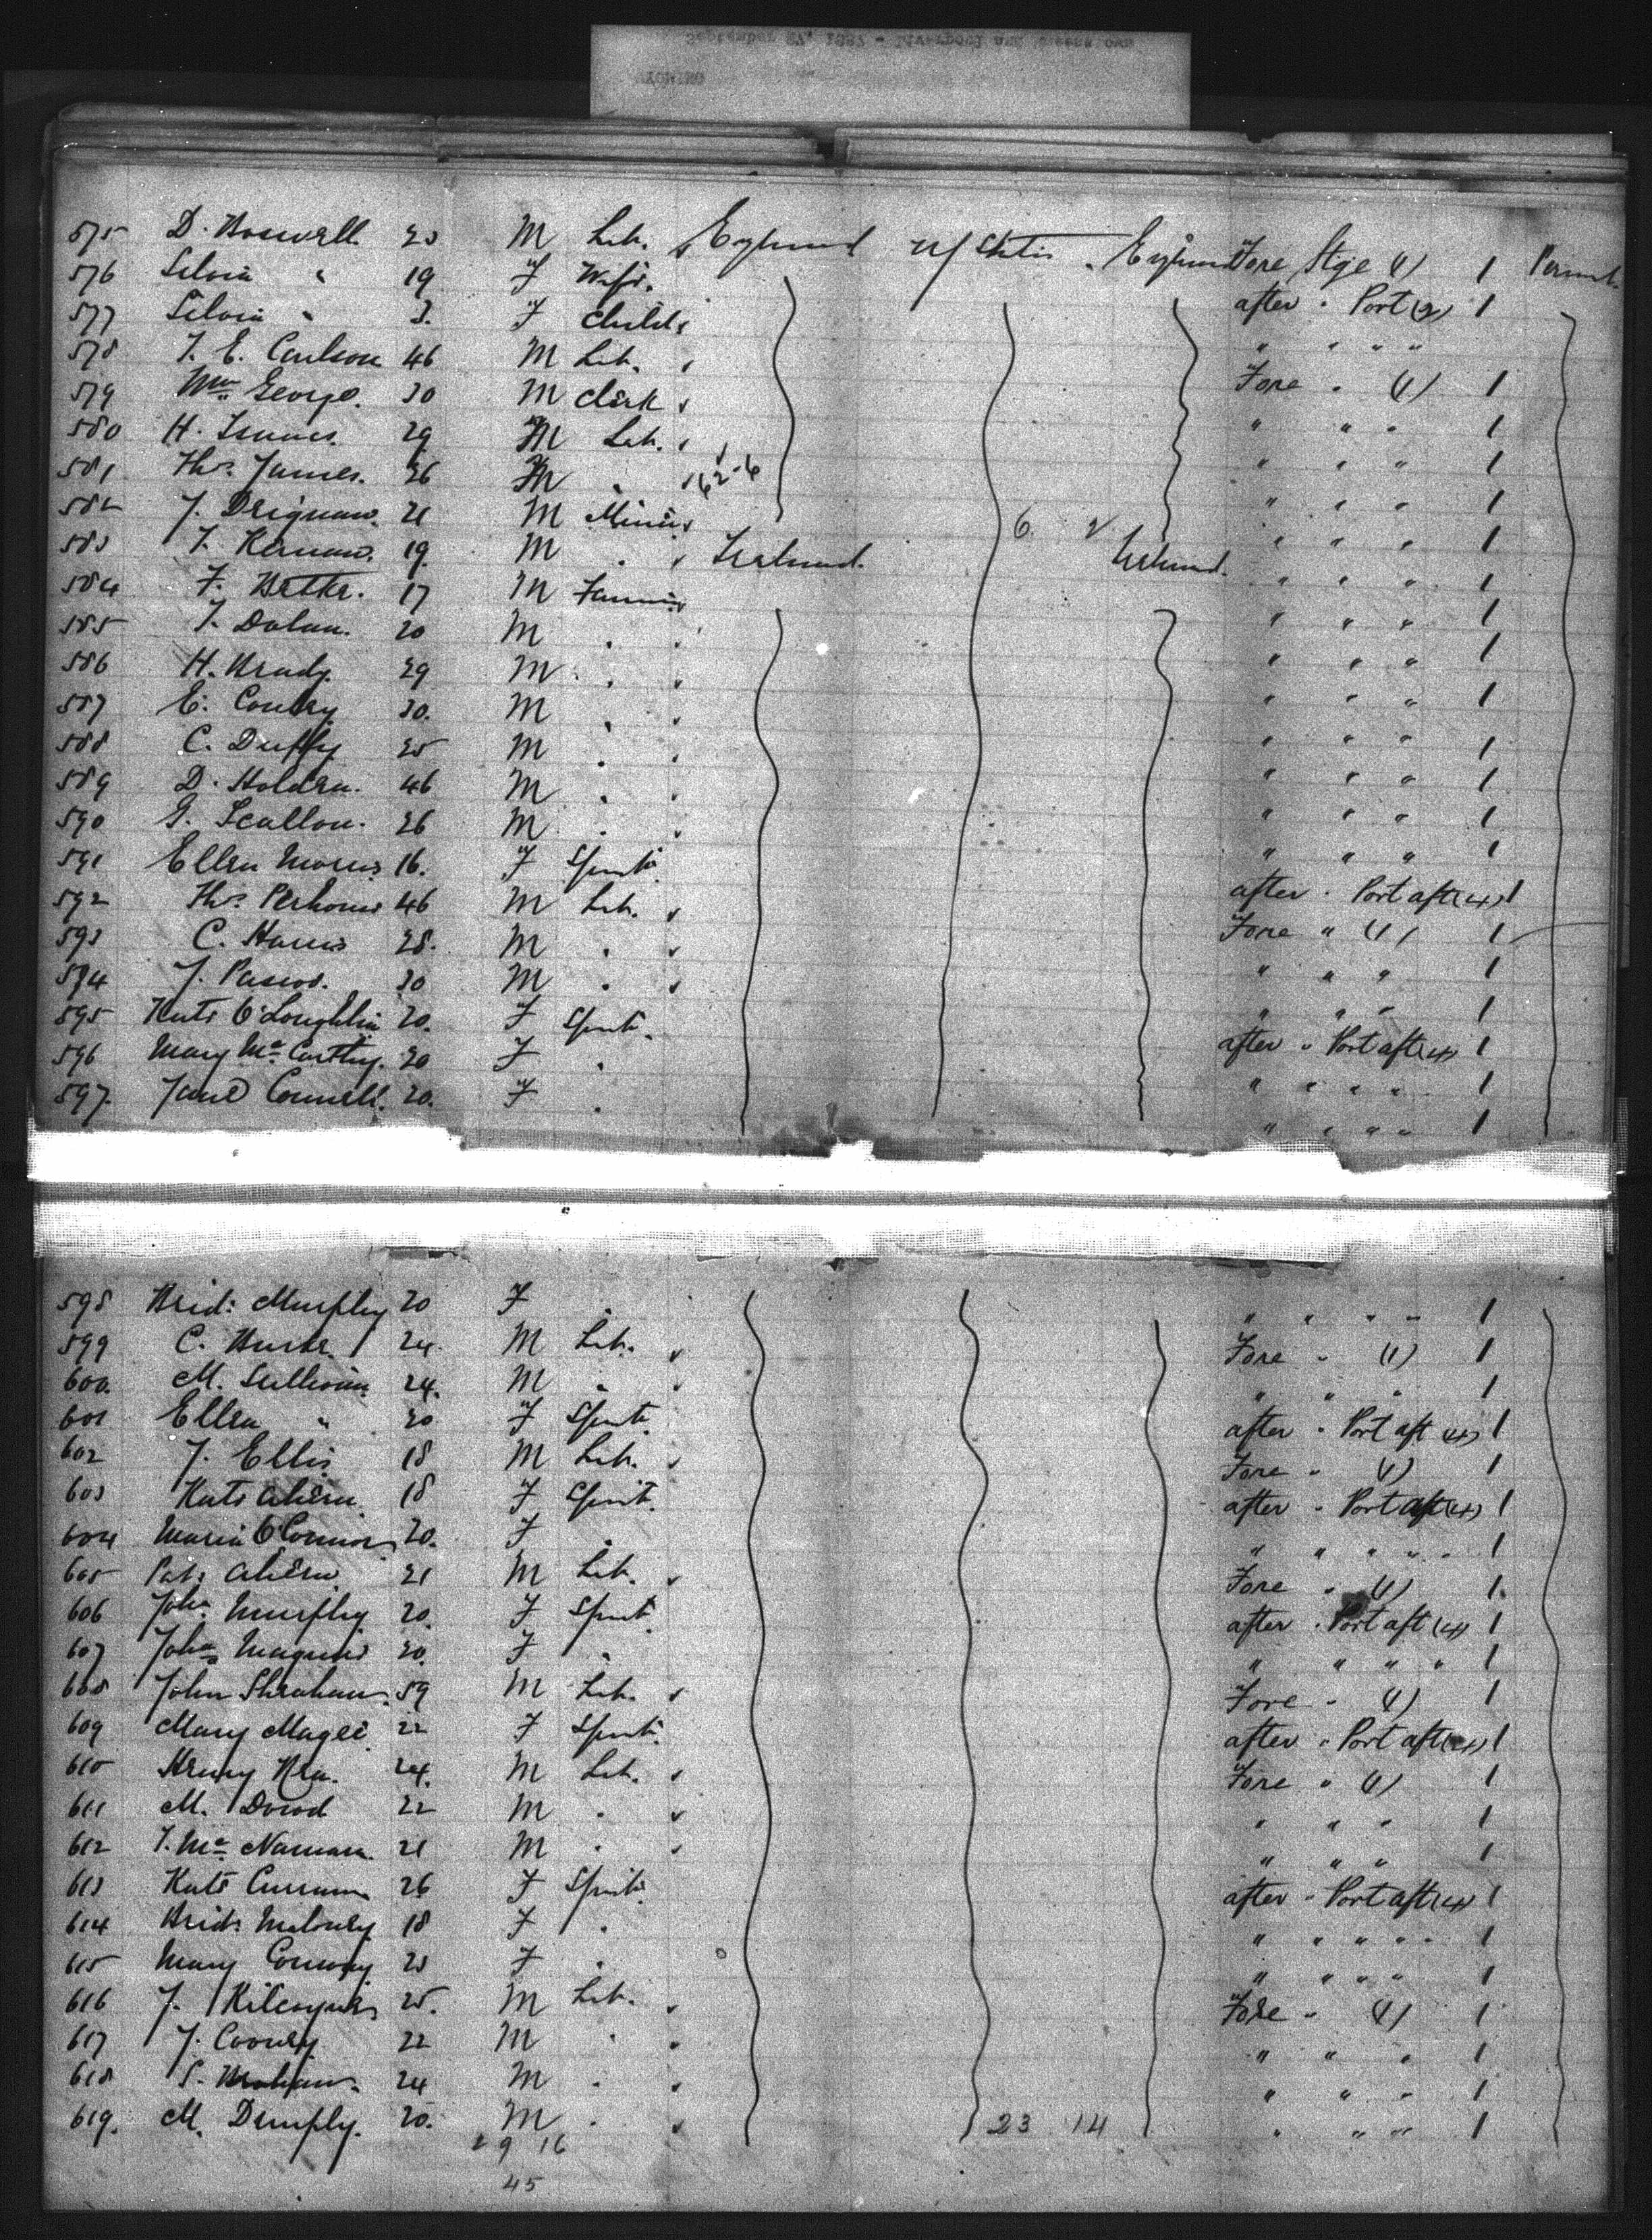 575 D. Boswell 23 M Lab. England U/States England Fore Stge (1) 1 Permt.
576 Silvia " 19 F Wife. after " Port (2) 1
577 Silvia " 3. F Child " " " "
578 J. E. Carlson 46 M Lab. Fore " (1) 1
579 Wm George. 30 M Clerk " " " 1
580 H. 29 M Lab. " " " 1
581 Ths. James. 26 M " 62-6 " " " 1
582 J. 21 M Miner 6 2 " " " 1
583 J. Kernan. 19. M " Ireland. Ireland. " " " 1
584 F. 17 M Farmer " " " 1
585 J. Dolan. 20 M " " " " 1
586 H. Brady. 29 M " " " " 1
587 E. Conboy 30. M " " " " 1
588 C. Duffy 25 M " " " " 1
589 D. Holden. 46 M " " " " 1
590 G. Scallon. 26 M " " " " 1
591 Ellen Morris 16. F Spinst. after " Port aft (4) 1
592 Ths. 46 M Lab. Fore " (1) 1
593 C. Harris 28. M " " " " 1
594 J. Pascoe. 30 M " " " " 1
595 Kate O'Loughlin 20. F Spinst. after " Port aft (4) 1
596 Mary McCarthy. 20 F " " " " " 1
597. Jane Connell. 20. F " " " " " 1
598 Brid: Murphy 20 F " " " " " 1
599 C. Burke. 24. M Lab. Fore " (1) 1
600. M. Sullivan 24. M " " " " 1
601 Ellen " 20 F Spinst. after " Port aft (4) 1
602 J. Ellis 18 M Lab. Fore " (1) 1
603 Kate Ahern 18 F Spinst. after " Port aft (4) 1
604 Maria O'Connor 20. F " " " " " 1
605 Pat: Ahern 21 M Lab. Fore " (1) 1
606 Joha. Murphy. 20. F Spinst. after " Port aft (4) 1
607 Joha. 20. F " " " " " 1
608 John Shrahan. 59 M Lab. Fore " (1) 1
609 Mary Magee 22 F Spinst. after " Port aft (4) 1
610 Henry Rea. 24. M Lab. Fore " (1) 1
611 M. 22 M " " " " 1
612 J. McNamara. 21 M " " " " 1
613 Kate Curran 26 F Spinst. after " Port aft (4) 1
614 Brid: Moloney 18 F " " " " " 1
615 Mary Conway 23 F " " " " 1
616 J. Kilcoyne 25. M Lab. Fore " (1) 1
617 J. Cooney 22 M " " " " 1
618 P. 24 M " " " " 1
619. M. Dumphy. 20. M " 23 14 " " " 1
29 16
45